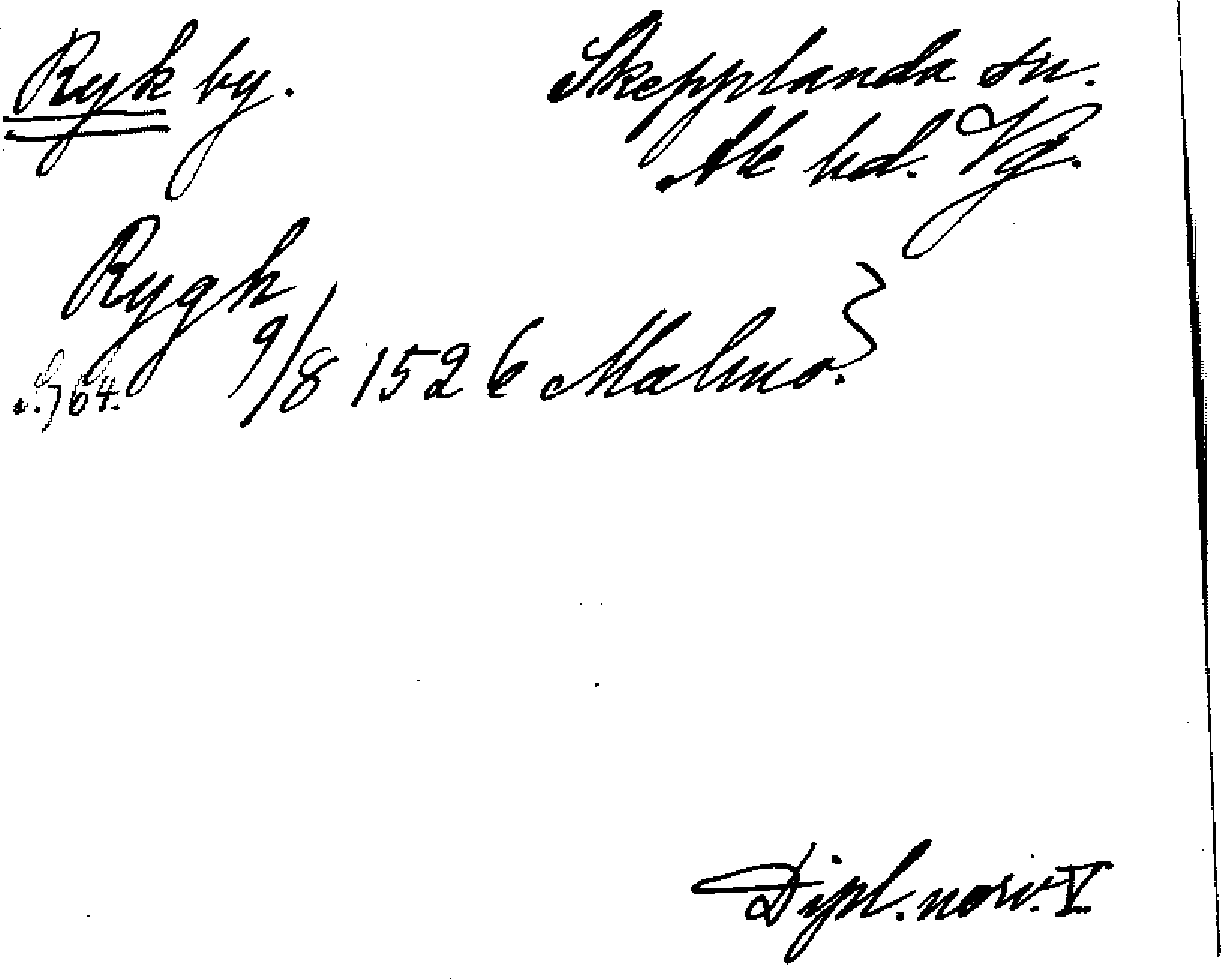 Ryk by. Skepplanda sn.
Ale hd. Vg.
Rygh
s. 764. 9/8 1526 Malmö.
Dipl. norv. V.